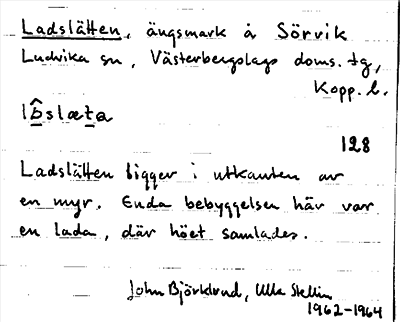 Ladslätten, ängsmark å Sörvik
Ludvika sn, Västerbergslags doms. tg,
Kopp. l.
128
Ladslätten ligger i utkanten av
en myr. Enda bebyggelsen här var
en lada, där höet samlades.
John Björklund, Ulla Stellin
1962-1964